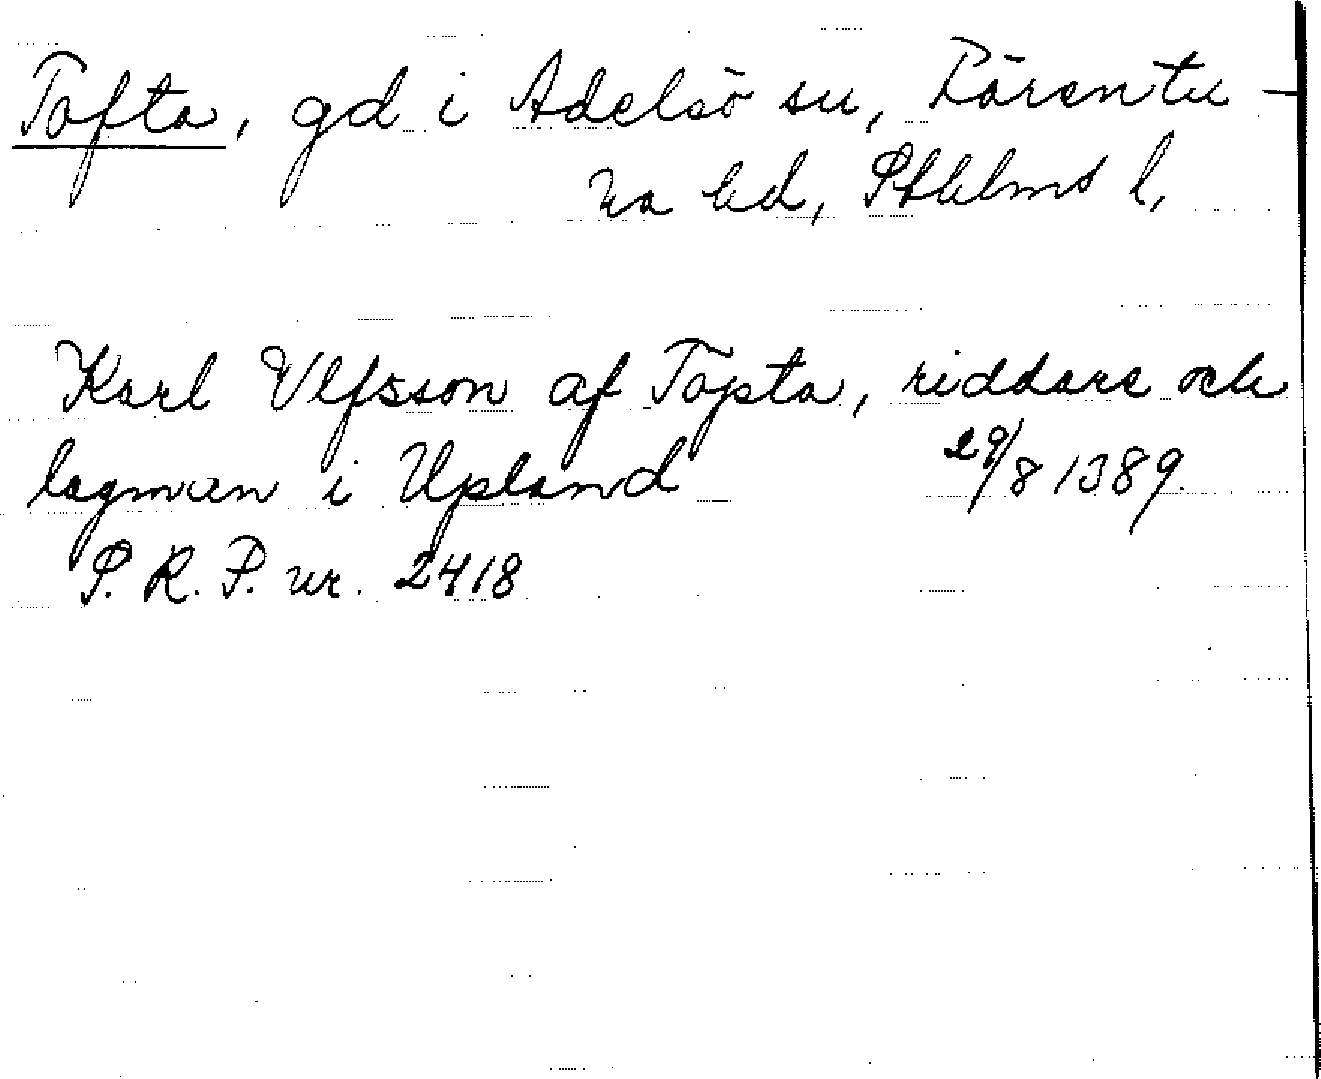 Tofta, gd i Adelsö sn, Färentu-
na hd, Sthlms l,
Karl Ulfsson af Tofta, riddare och
lagman i Upland 29/8 1389.
S. R. P. nr. 2418